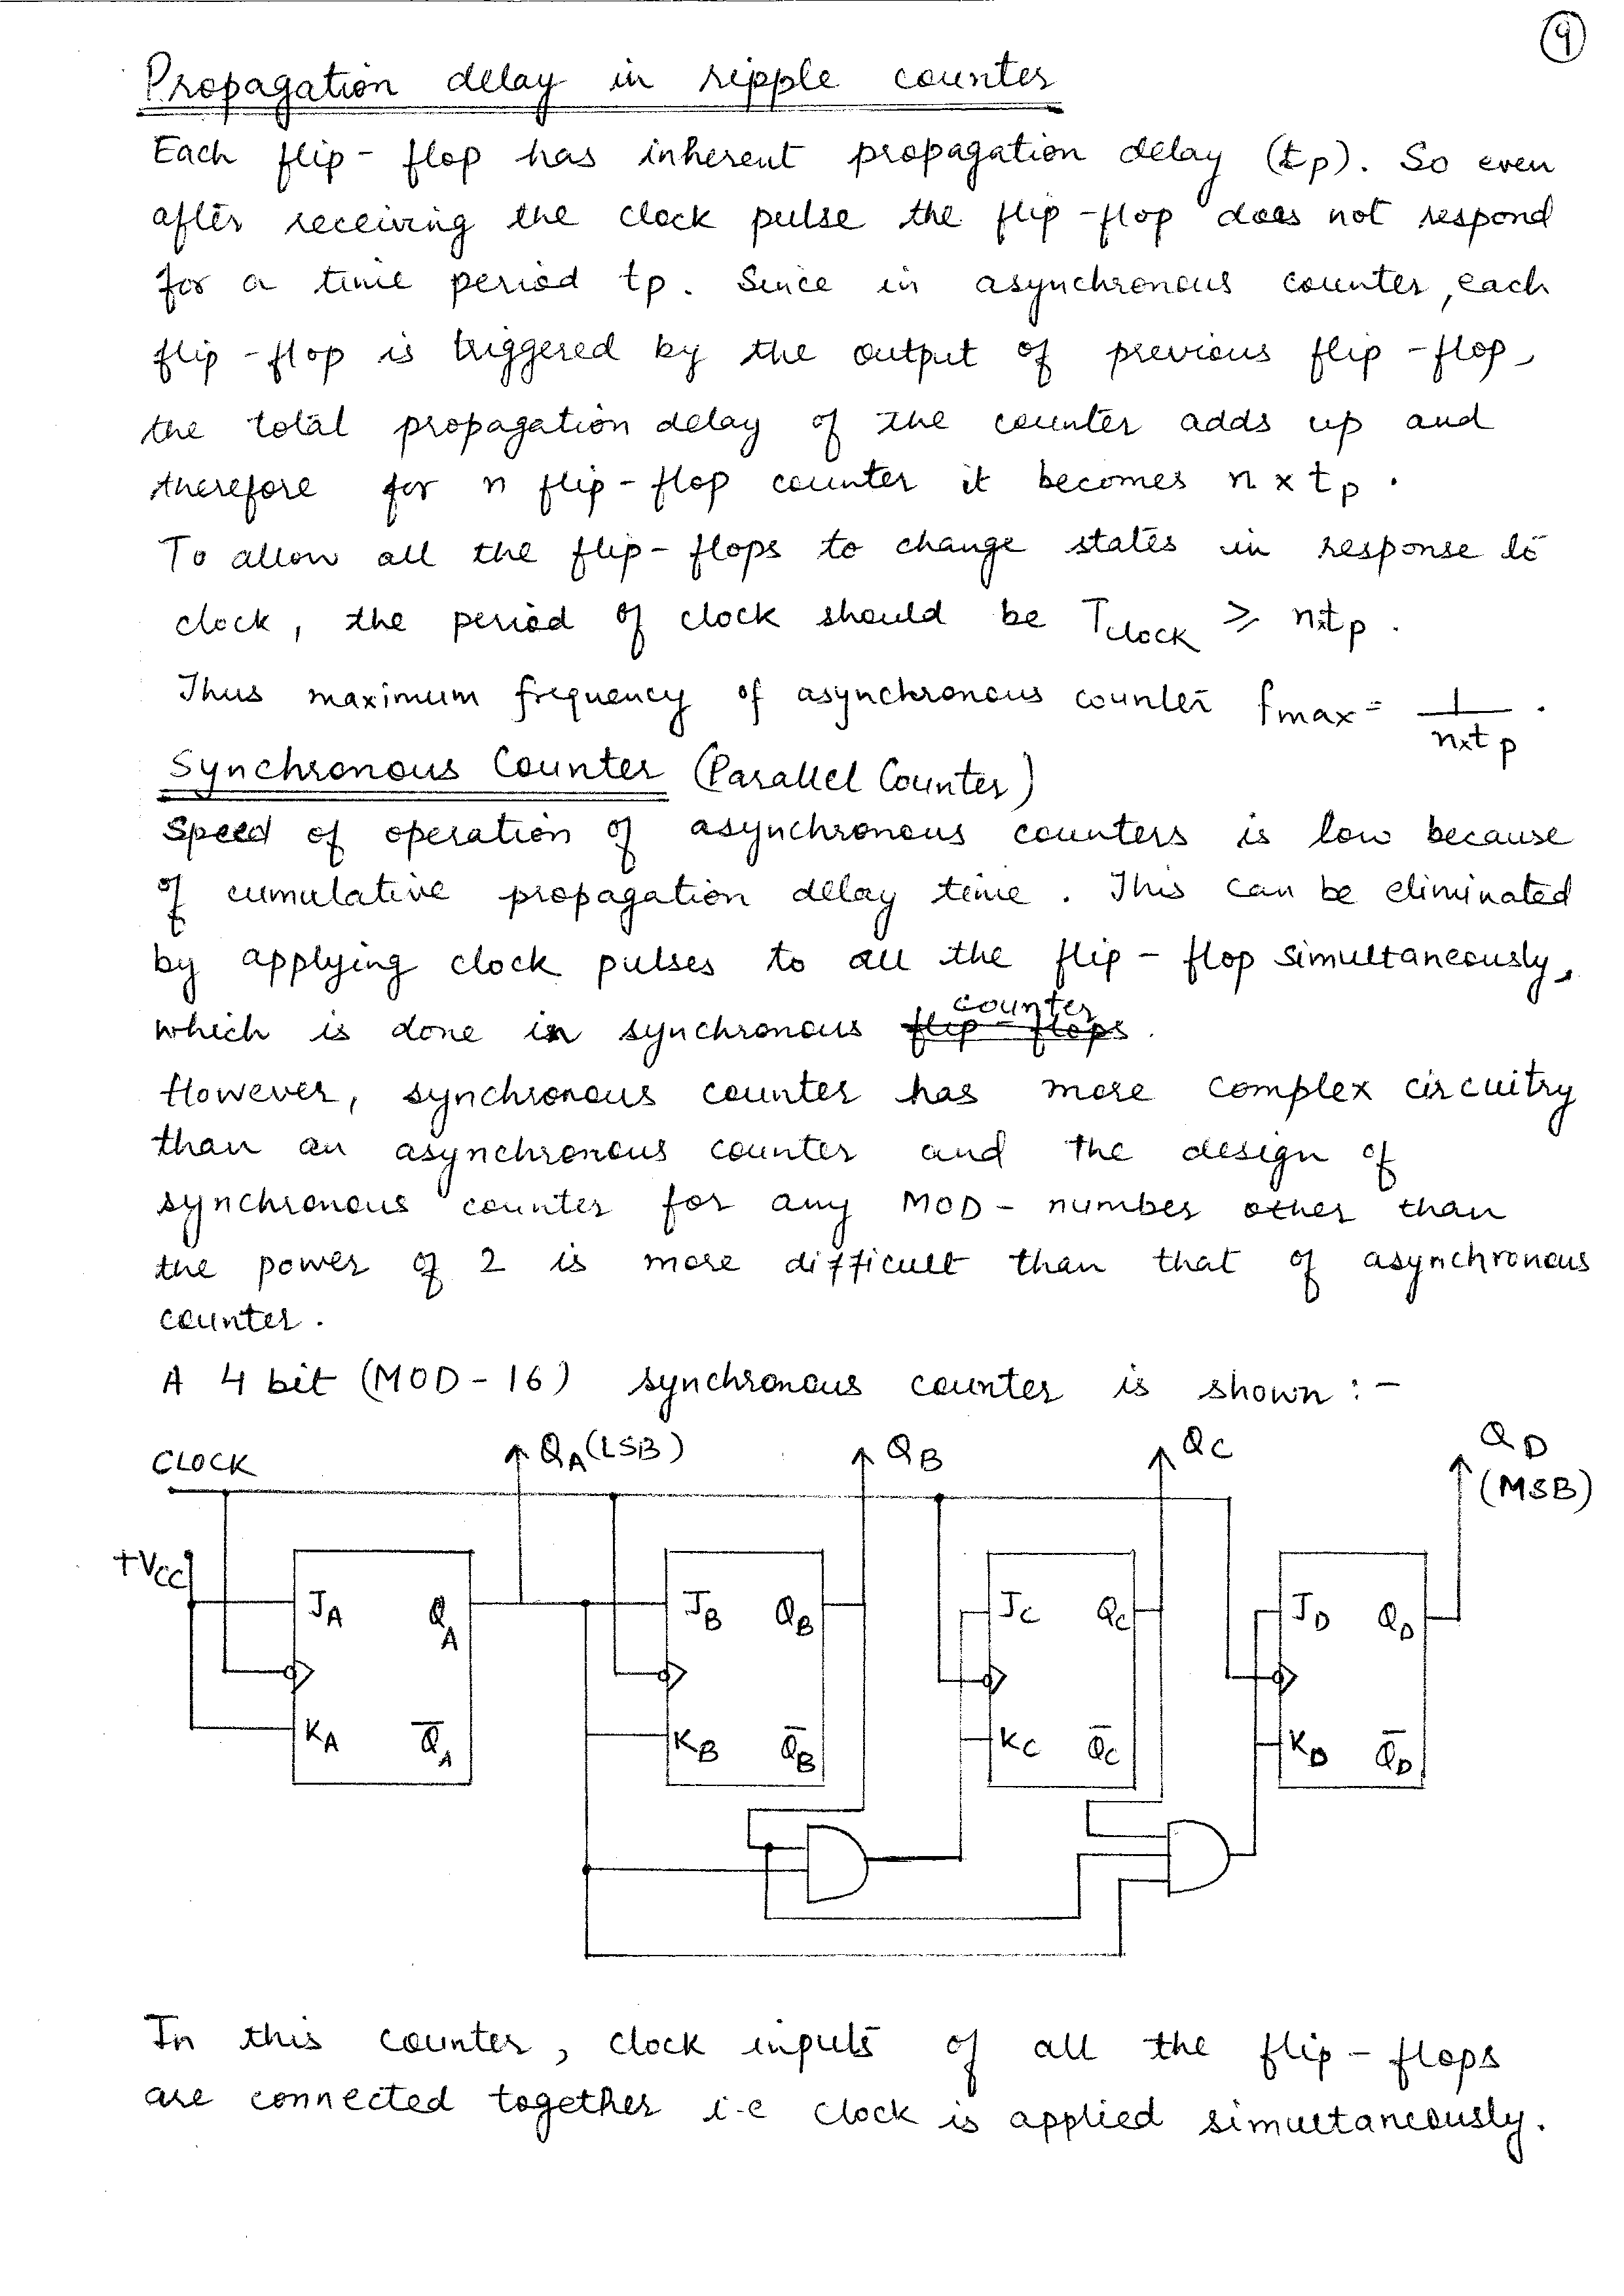 9
Propagation delay in ripple counter
Each flip-flop has inherent propagation delay (tp). So even
after receiving the clock pulse the flip-flop does not respond
for a time period tp. Since in asynchronous counter, each
flip-flop is triggered by the output of previous flip-flop,
the total propagation delay of the counter adds up and
therefore for n flip-flop counter it becomes n x tp.
To allow all the flip-flops to change states in response to
clock, the period of clock should be Tclock ≥ nxtp.
Thus maximum frequency of asynchronous counter fmax = 1/nxtp.
Synchronous Counter (Parallel Counter)
Speed of operation of asynchronous counters is low because
of cumulative propagation delay time. This can be eliminated
by applying clock pulses to all the flip-flop simultaneously,
which is done in synchronous flip-flops counter.
However, synchronous counter has more complex circuitry
than an asynchronous counter and the design of
synchronous counter for any MOD-number other than
the power of 2 is more difficult than that of asynchronous
counter.
A 4 bit (MOD-16) synchronous counter is shown :-
CLOCK QA (LSB) QB QC QD
(MSB)
+VCC
JA QA JB QB JC QC JD QD
KA Q̅A KB Q̅B KC Q̅C KD Q̅D
In this counter, clock inputs of all the flip-flops
are connected together i.e clock is applied simultaneously.